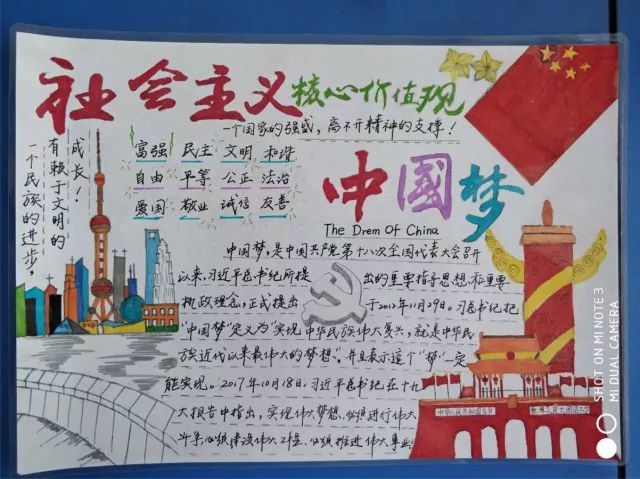 社会主义核心价值观
一个国家的强盛，离不开精神的支撑！
富强 民主 文明 和谐
自由 平等 公正 法治
爱国 敬业 诚信 友善
一个民族的进步，
有赖于文明的
成长！
中國梦
The Drem Of China
中国梦，是中国共产党第十八次全国代表大会召开
以来，习近平总书纪所提出的重要指导思想和重要
执政理念，正式提出于2012年11月29日。习总书纪把
"中国梦"定义为"实现中华民族伟大复兴，就是中华民
族近代以来最伟大的梦想"。并且表示这个"梦"一定
能实现。2017年10月18日，习近平总书纪在十九
大报告中指出，实现伟大梦想，必须进行伟大
斗争，必须建设伟大工程，必须推进伟大事业！
中华人民共和国万岁
世界人民大团结万岁
SHOT ON MI NOTE 3
MI DUAL CAMERA